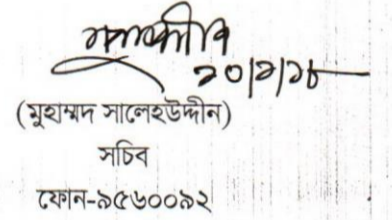 ২০/২/১৮
(মুহাম্মদ সালেহউদ্দীন)
সচিব
ফোন-৯৫৬০০৯২